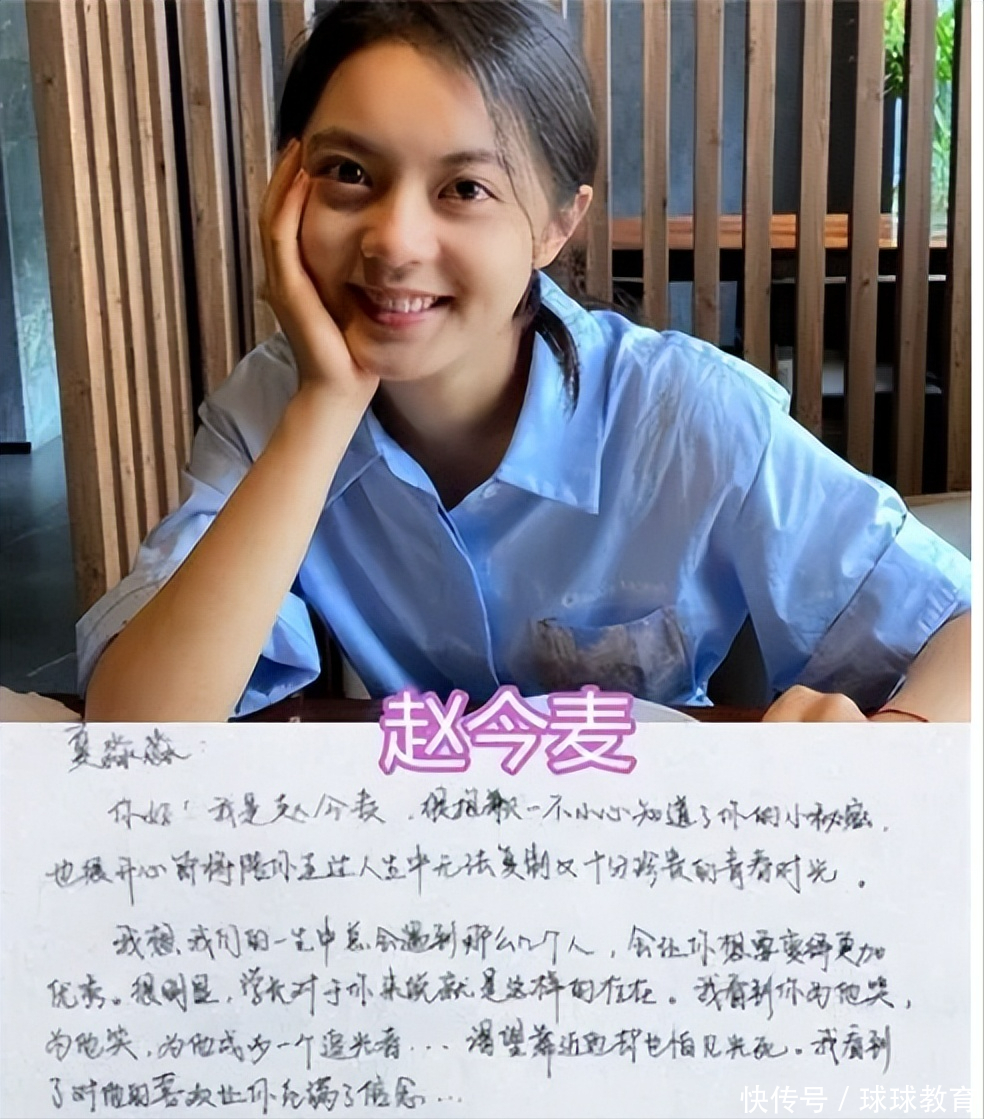 赵今麦
夏淼淼：
你好！我是赵今麦，很抱歉一不小心知道了你的小秘密，
也很开心能够陪你走过人生中无法复制又十分珍贵的青春时光。
我想，我们的一生中总会遇到那么几个人，会让你想要变得更加
优秀。很明显，学长对于你来说就是这样的存在。我看到你为他哭，
为他笑，为他成为一个追光者...渴望靠近却也怕见光死。我看到
了对他的喜欢让你充满了信念...
快传号 / 球球教育